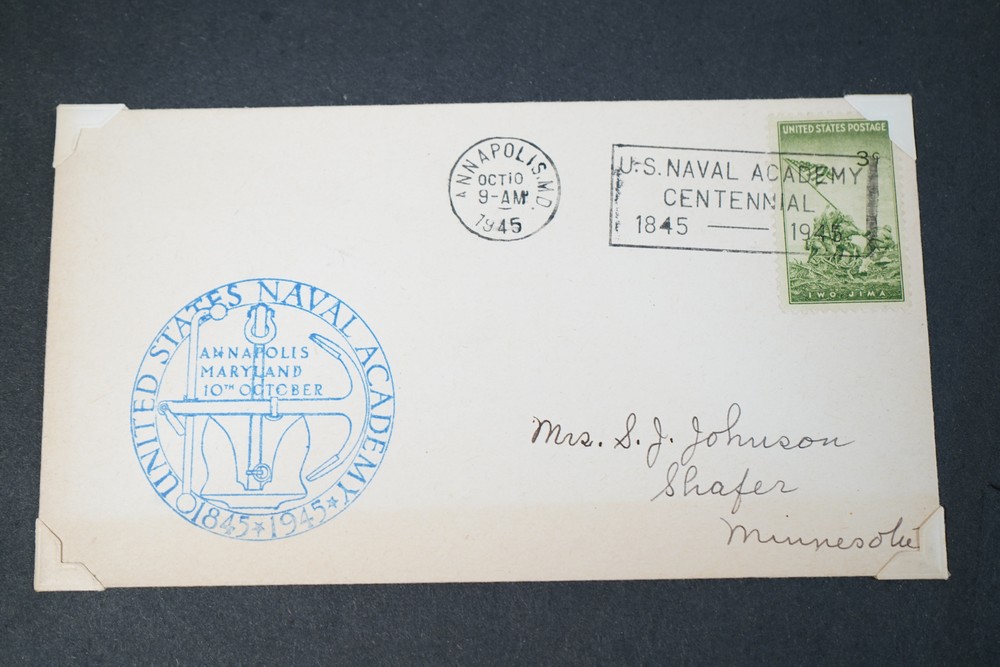 UNITED STATES POSTAGE
3¢
IWO JIMA
ANNAPOLIS, MD.
OCT 10
9-AM
1945
U.S. NAVAL ACADEMY
CENTENNIAL
1845 — 1945
UNITED STATES NAVAL ACADEMY
ANNAPOLIS
MARYLAND
10TH OCTOBER
1845 ★ 1945 ★
Mrs. S. J. Johnson
Shafer
Minnesota